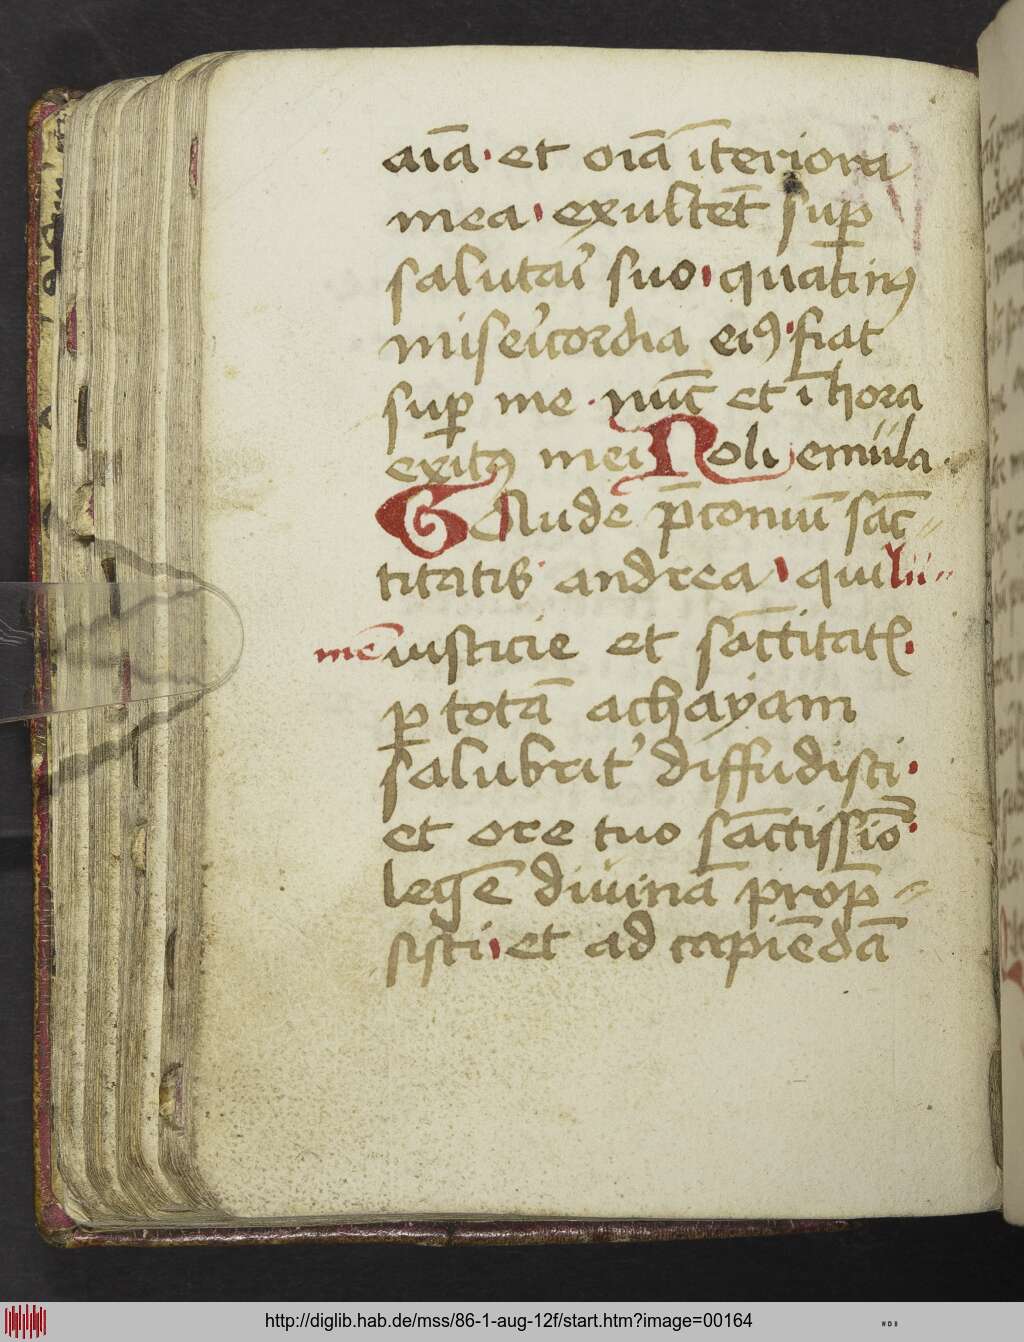 aīa · et oīa īteriora
mea · exultēt sup̱
salutaı͛ suo · quatinꝰ
miseı͛cordia eiꝰ · fiat
sup̱ me · nūc et ī hora
exitꝰ mei Noli emula
Gaude p̄coniū sāc⸗
titatis andrea · qui lu⸗
mē iusticie et sāctitatꝭ ·
ꝑ totā achayam
salubrit͛ diffudisti ·
et ore tuo sāctissīo ·
legē diuinā prop̄⸗
sisti · et ad capiēdā
http://diglib.hab.de/mss/86-1-aug-12f/start.htm?image=00164